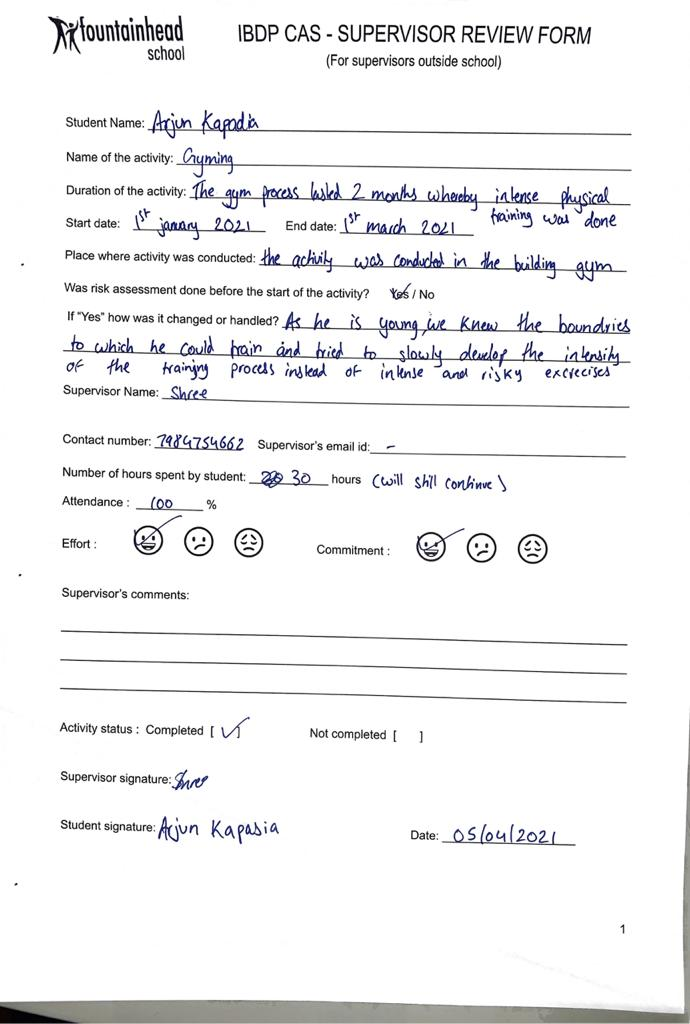 fountainhead
school
IBDP CAS - SUPERVISOR REVIEW FORM
(For supervisors outside school)
Student Name: Arjun Kapadia
Name of the activity: Gyming
Duration of the activity: The gym process lasted 2 months whereby intense physical
training was done
Start date: 1st janary 2021 End date: 1st march 2021
Place where activity was conducted: the activity was conducted in the building gym
Was risk assessment done before the start of the activity? Yes / No
If "Yes" how was it changed or handled? As he is young, we knew the boundries
to which he could train and tried to slowly develop the intensity
of the training process instead of intense and risky excrecises
Supervisor Name: Shree
Contact number: 7984754662 Supervisor's email id: -
Number of hours spent by student: 30 hours (will still continue)
Attendance : 100 %
Effort : Commitment :
Supervisor's comments:
Activity status : Completed [✓] Not completed [ ]
Supervisor signature: Shree
Student signature: Arjun Kapasia
Date: 05/04/2021
1